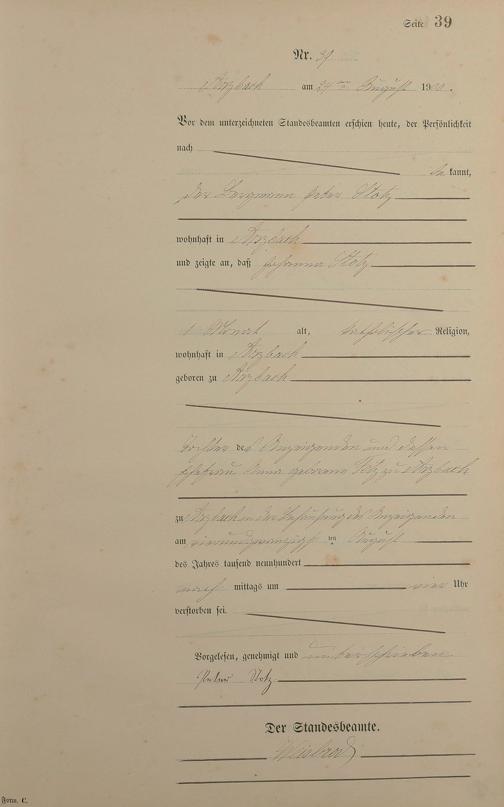 Seite 39
Nr. 39
Arzbach am 24ten August 19
Vor dem unterzeichneten Standesbeamten erschien heute, der Persönlichkeit
nach
be kannt,
der Bergmann Peter
wohnhaft in Arzbach
und zeigte an, daß Johanna
1 Monat alt, katholischer Religion,
wohnhaft in Arzbach
geboren zu Arzbach
Tochter des Anzeigenden und dessen
Ehefrau Anna geborene zu Arzbach
zu Arzbach in der Behausung des Anzeigenden
am vierundzwanzigsten August
des Jahres tausend neunhundert
nach mittags um vier Uhr
verstorben sei.
Vorgelesen, genehmigt und unterschrieben
Peter
Der Standesbeamte.
Form. C.